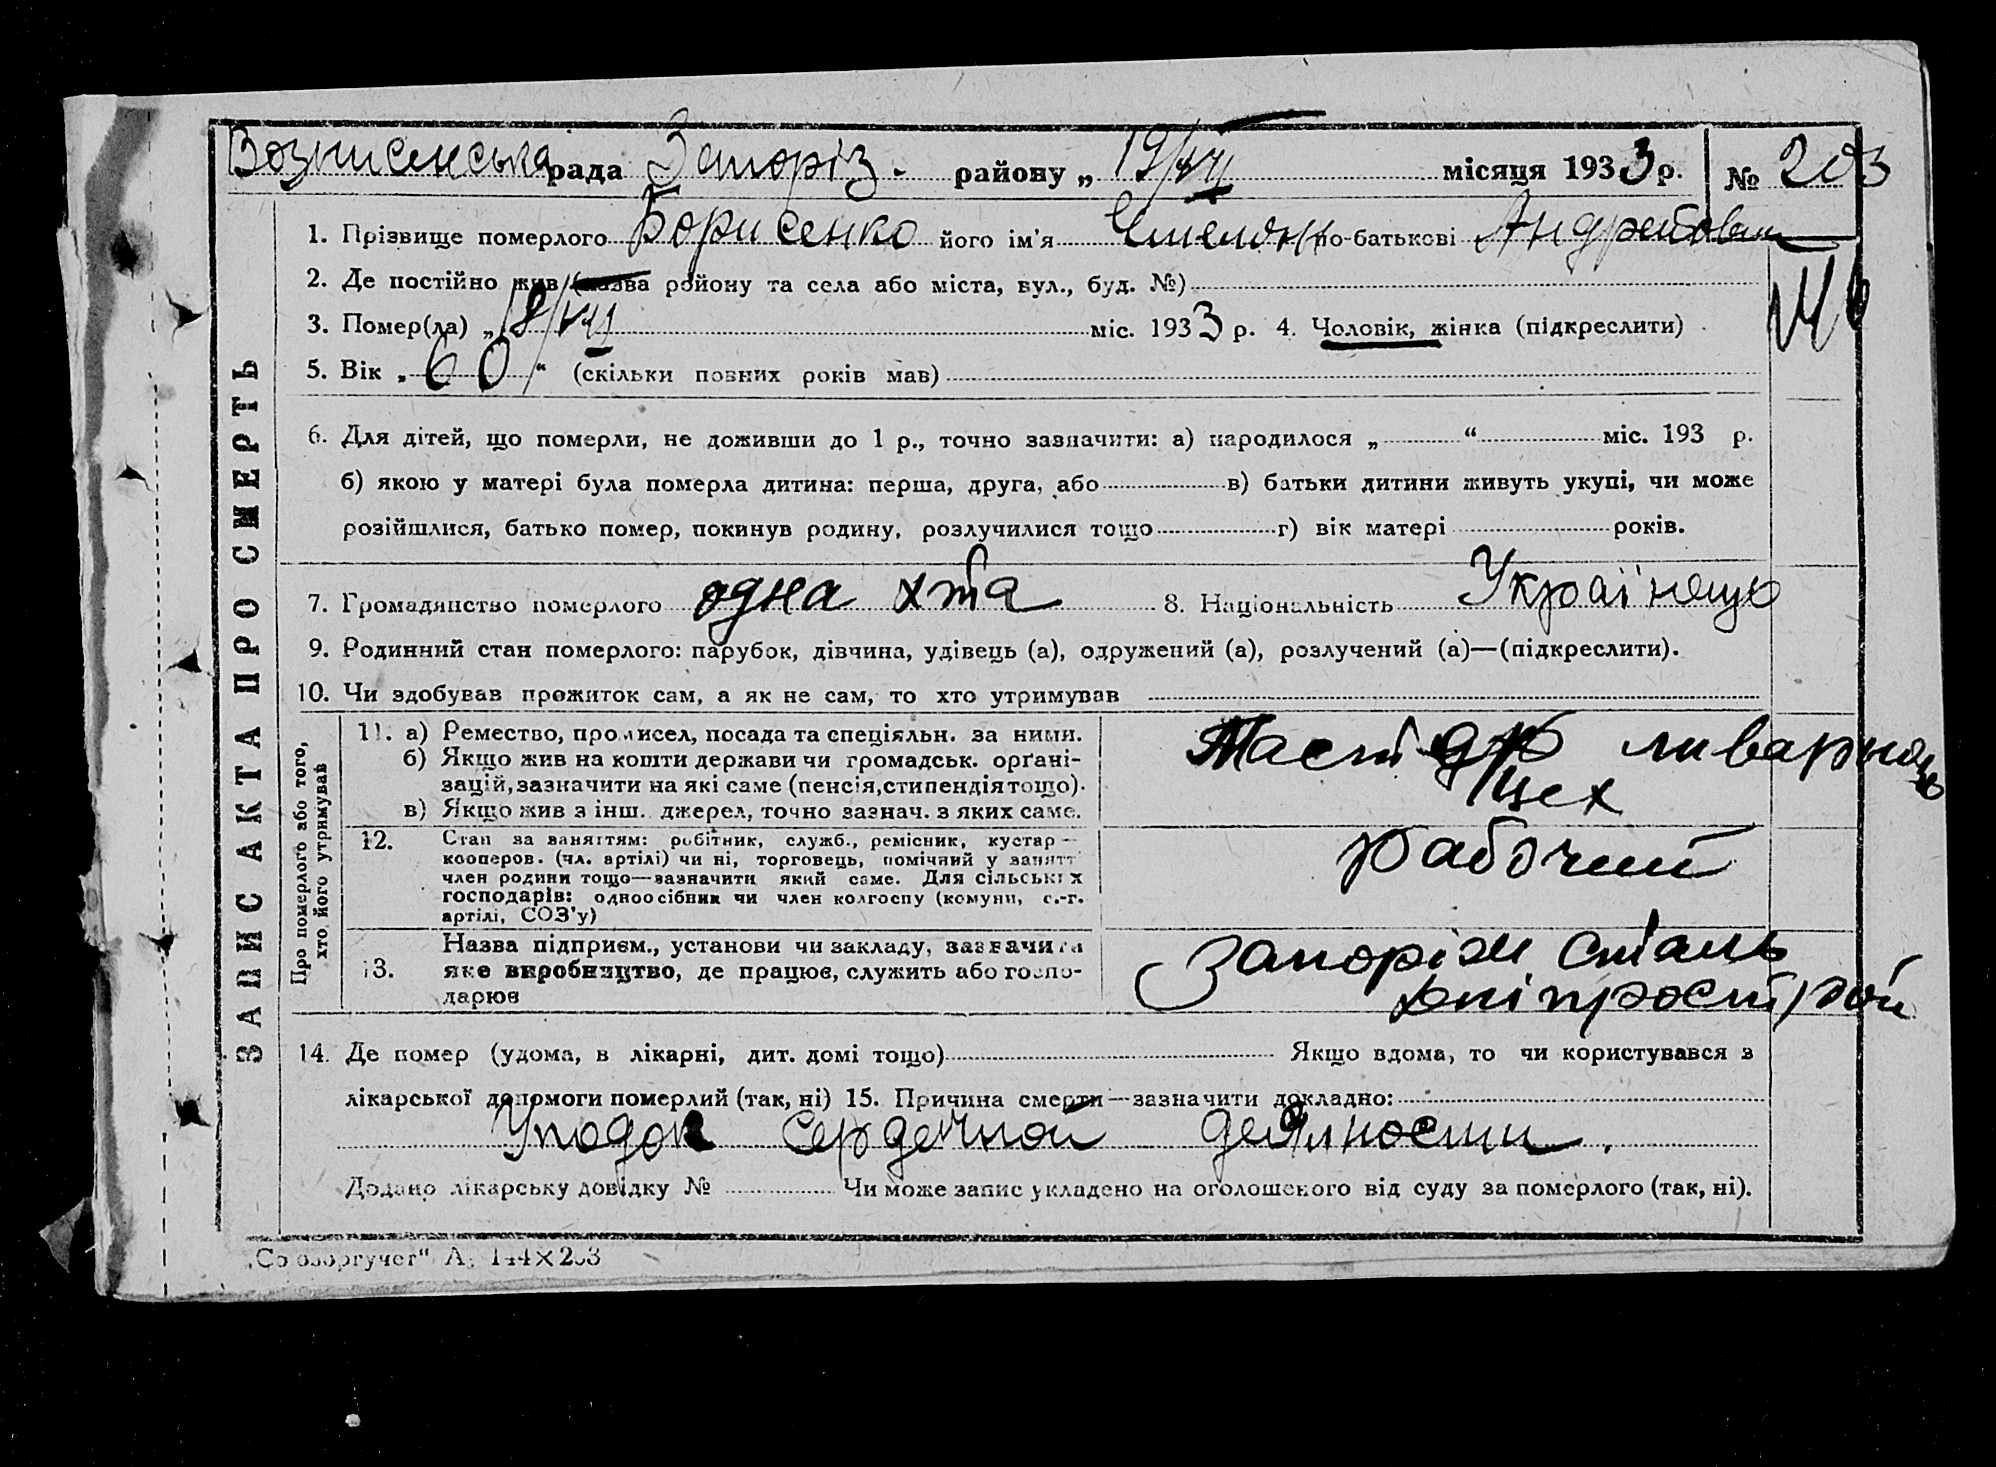 Вознисенська рада Запоріз. району „ 19/VII місяця 1933 р. № 203
1. Прізвище померлого Борисенко його ім'я Емельян по-батькові Андреевич
2. Де постійно жив (назва району та села або міста, вул., буд. №)
3. Помер(ла) „ 18/VII міс. 1933 р. 4. Чоловік, жінка (підкреслити)
5. Вік „ 60 “ (скільки повних років мав)
6. Для дітей, що померли, не доживши до 1 р., точно зазначити: а) народилося „ “ міс. 193 р.
б) якою у матері була померла дитина: перша, друга, або в) батьки дитини живуть укупі, чи може
розійшлися, батько помер, покинув родину, розлучилися тощо г) вік матері років.
7. Громадянство померлого 8. Національність Українець
9. Родинний стан померлого: парубок, дівчина, удівець (а), одружений (а), розлучений (а)—(підкреслити).
10. Чи здобував прожиток сам, а як не сам, то хто утримував
ЗАПИС АКТА ПРО СМЕРТЬ
Про померлого або того,
хто його утримував
11. а) Ремество, промисел, посада та спеціяльн. за ними.
б) Якщо жив на кошти держави чи громадськ. орґані-
зацій, зазначити на які саме (пенсія, стипендія тощо).
в) Якщо жив з інш. джерел, точно зазнач. з яких саме.
ливарного
цех
12. Стан за заняттям: робітник, служб., ремісник, кустар—
кооперов. (чл. артілі) чи ні, торговець, помічний у занятт
член родини тощо—зазначити який саме. Для сільських
господарів: одноосібник чи член колгоспу (комуни, с.-г.
артілі, СОЗ'у)
рабочий
13. Назва підприєм., установи чи закладу, зазначити
яке виробництво, де працює, служить або госпо-
дарює
Запоріж сталь
Дніпрострой
14. Де помер (удома, в лікарні, дит. домі тощо) Якщо вдома, то чи користувався з
лікарської допомоги померлий (так, ні) 15. Причина смерти—зазначити докладно:
Уподок сердечной деялности.
Додано лікарську довідку № Чи може запис укладено на оголошеного від суду за померлого (так, ні).
144×203